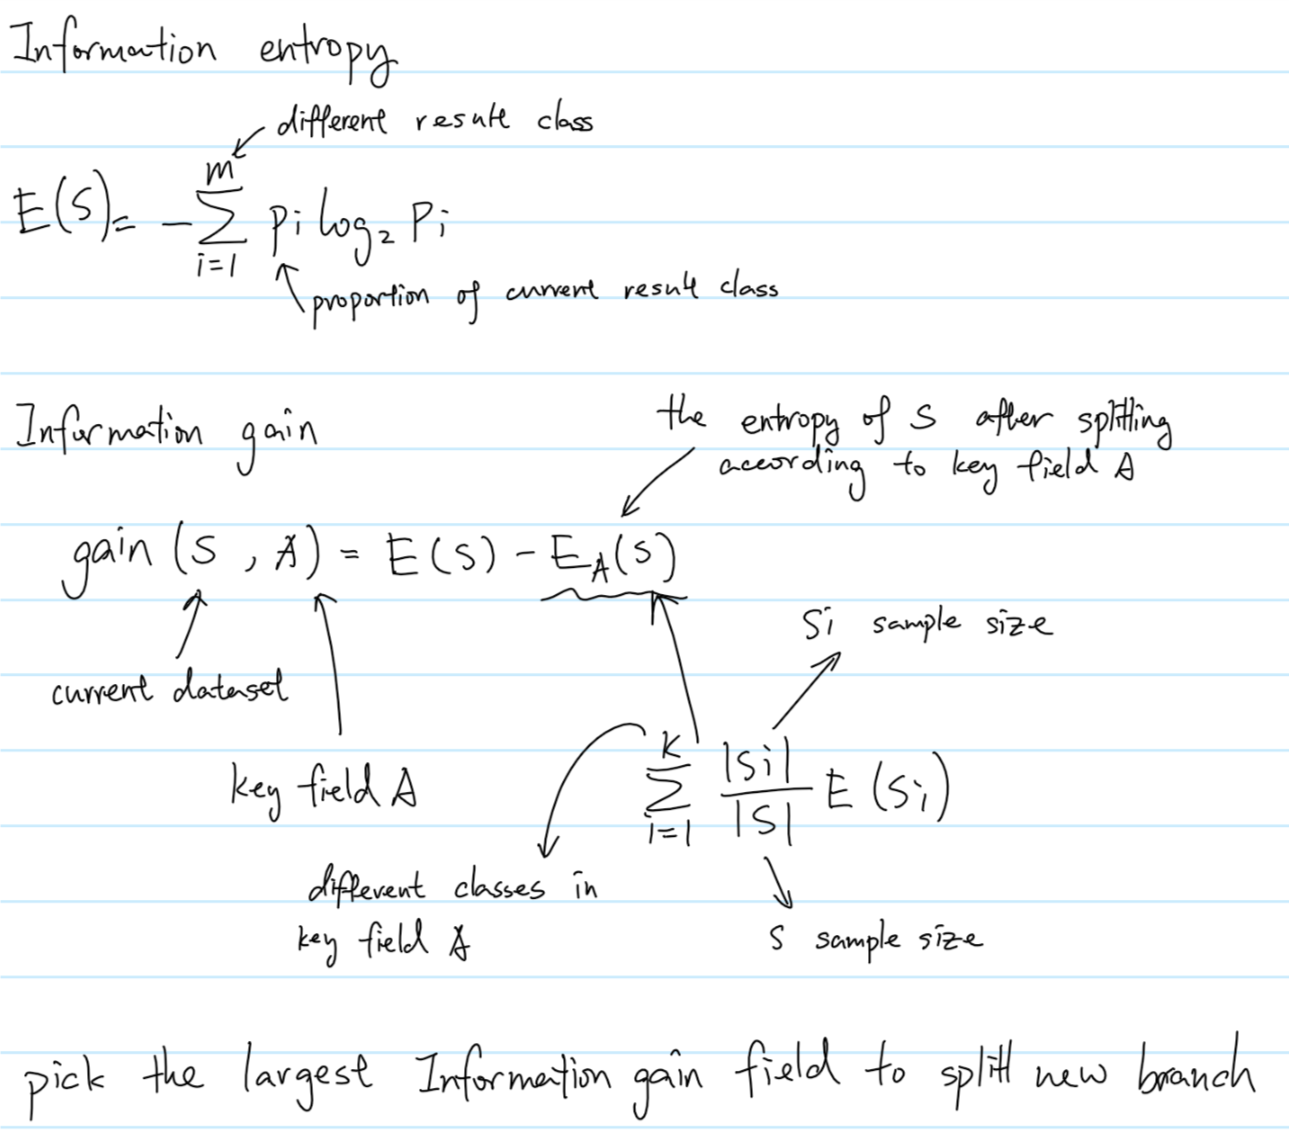 Information entropy
different result class
E(S) = - \sum_{i=1}^{m} pi log₂ Pi
proportion of current result class
Information gain
the entropy of S after splitting
according to key field A
gain (S , A) = E(S) - E_A(S)
Si sample size
current dataset
\sum_{i=1}^{K} \frac{|Si|}{|S|} E (Si)
key field A
different classes in
key field A
S sample size
pick the largest Information gain field to splitt new branch